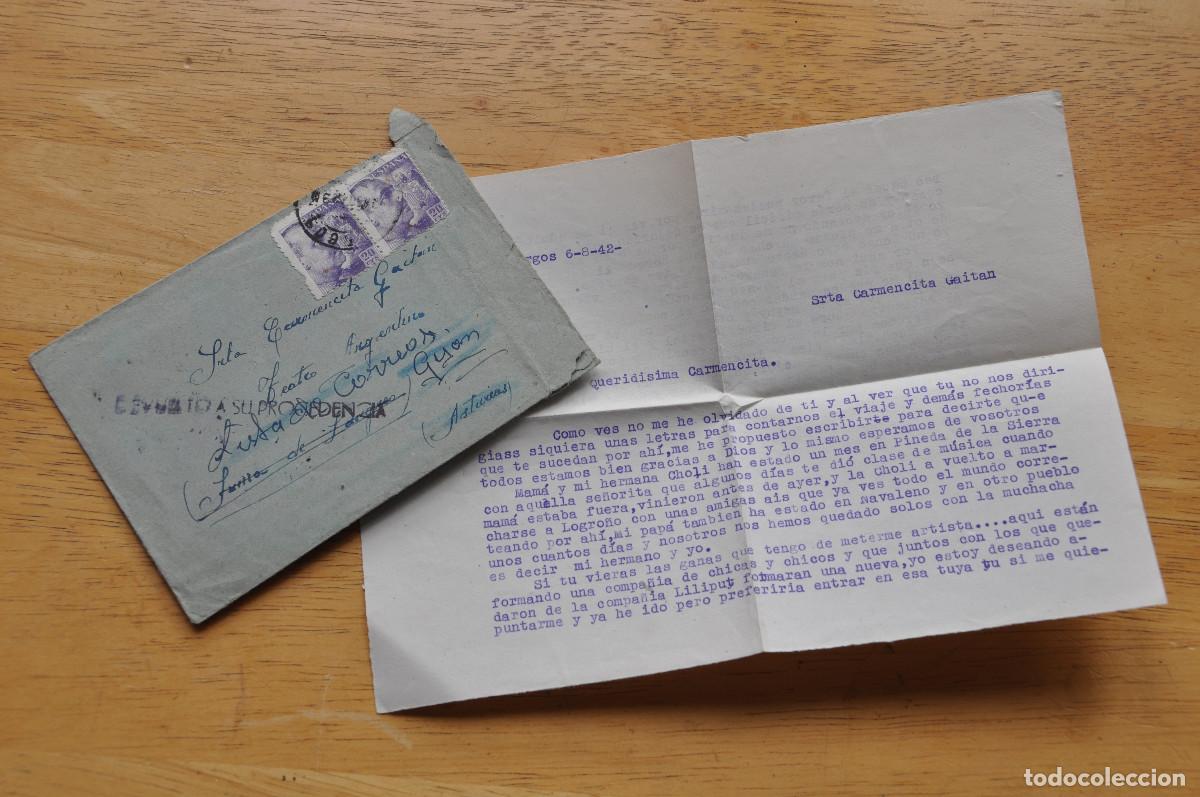 ESPAÑA
20
CTS
20
CTS
Srta Carmencita Gaitan
Teatro Argentino
Lista Correos
Gijón
(Asturias)
A SU PROCEDENCIA
rgos 6-8-42-
Srta Carmencita Gaitan
queridisima Carmencita.
Como ves no me he olvidado de ti y al ver que tu no nos diri-
giass siquiera unas letras para contarnos el viaje y demás fechorías
que te sucedan por ahí,me he propuesto escribirte para decirte qu-e
todos estamos bien gracias a Dios y lo mismo esperamos de vosotros
Mamá y mi hermana Choli han estado un mes en Pineda de la Sierra
con aquella señorita que algunos días te dió clase de música cuando
mamá estaba fuera,vinieron antes de ayer,y la Choli a vuelto a mar-
charse a Logroño con unas amigas ais que ya ves todo el mundo corre-
teando por ahí,mi papá tambien ha estado en Navaleno y en otro pueblo
unos cuantos días y nosotros nos hemos quedado solos con la muchacha
es decir mi hermano y yo.
Si tu vieras las ganas que tengo de meterme artista....aqui están
formando una compañia de chicas y chicos y que juntos con los que que-
daron de la compañia Liliput formaran una nueva,yo estoy deseando a-
puntarme y ya he ido pero preferiria entrar en esa tuya tu si me quie-
todocoleccion